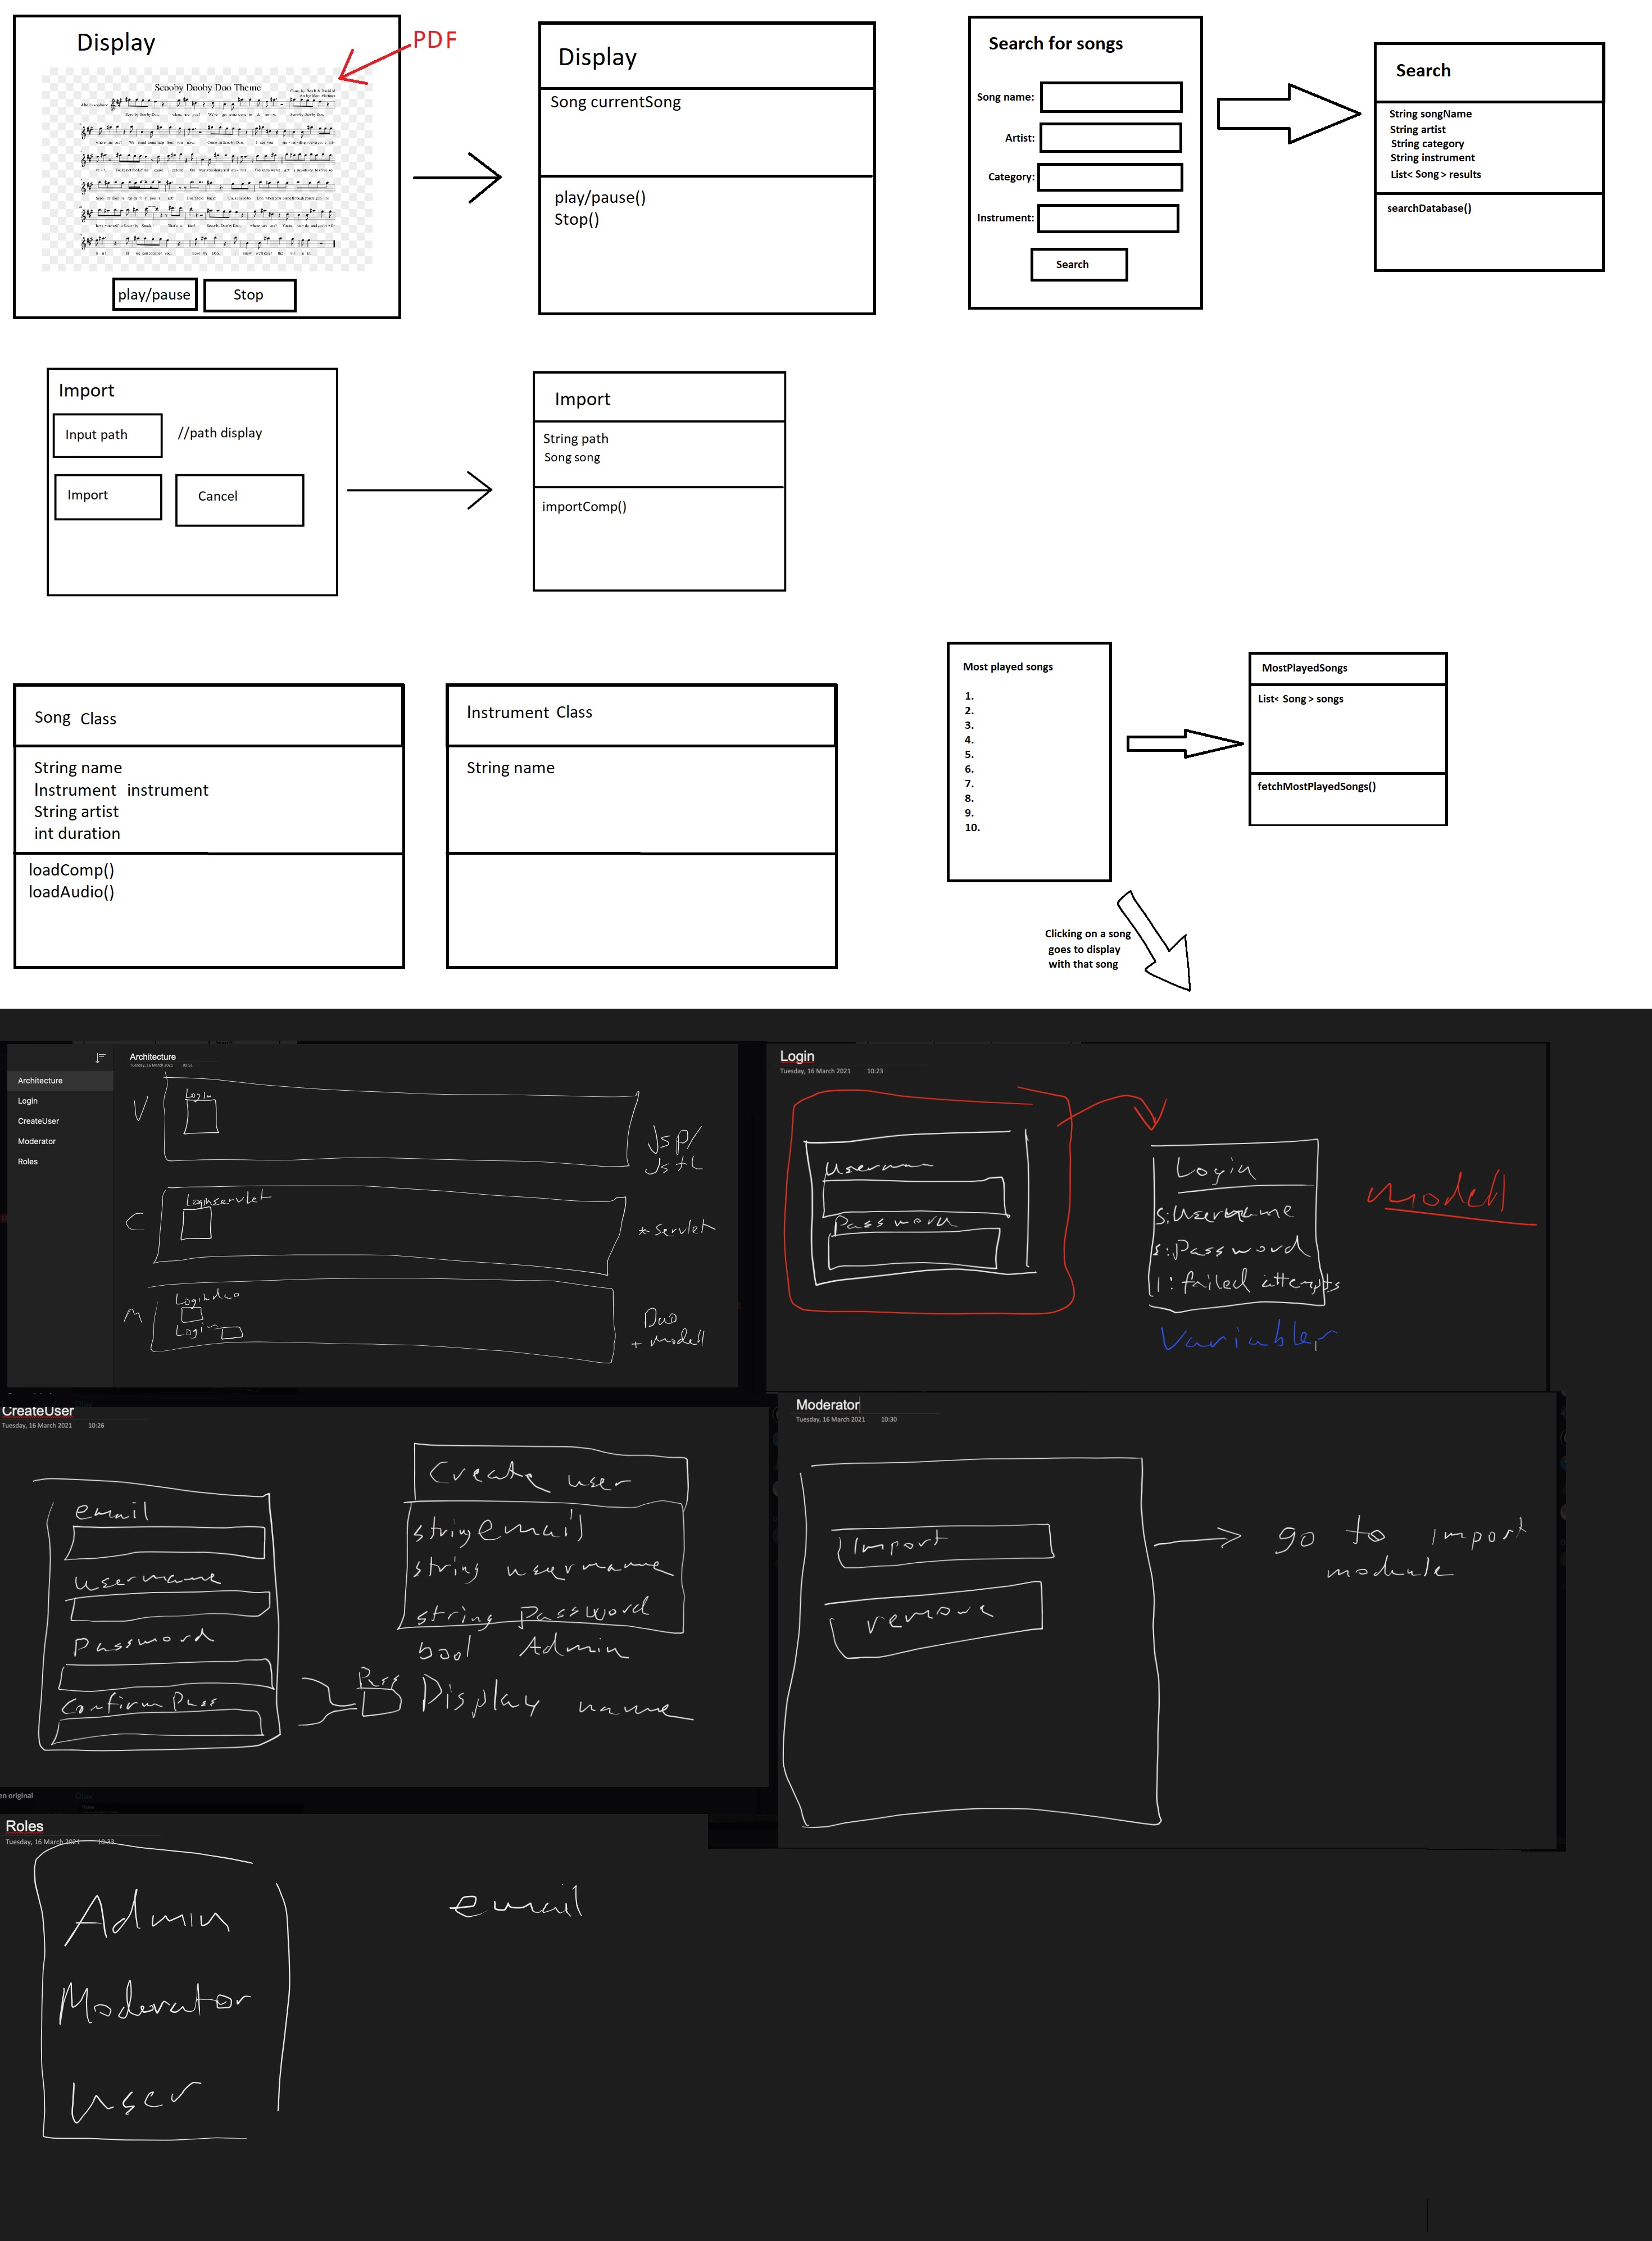 Display
PDF
Scooby Dooby Doo Theme
play/pause
Stop
Display
Song currentSong
play/pause()
Stop()
Search for songs
Song name:
Artist:
Category:
Instrument:
Search
Search
String songName
String artist
String category
String instrument
List< Song > results
searchDatabase()
Import
Input path
//path display
Import
Cancel
Import
String path
Song song
importComp()
Song Class
String name
Instrument instrument
String artist
int duration
loadComp()
loadAudio()
Instrument Class
String name
Most played songs
1.
2.
3.
4.
5.
6.
7.
8.
9.
10.
MostPlayedSongs
List< Song > songs
fetchMostPlayedSongs()
Clicking on a song
goes to display
with that song
Architecture
Login
CreateUser
Moderator
Roles
Architecture
Tuesday, 16 March 2021
V
Login
Jsp/
Jstl
C
Loginservlet
*servlet
M
Logindao
Login
Dao
+ modell
Login
Tuesday, 16 March 2021 10:23
Username
Password
Login
s:Username
s:Password
I: failed attempts
modell
Variabler
CreateUser
Tuesday, 16 March 2021 10:26
email
username
Password
Confirm Pass
Create user
string email
string username
string password
bool Admin
Pass
Display name
Moderator
Tuesday, 16 March 2021 10:30
Import
remove
go to import
module
en original
Roles
Tuesday, 16 March 2021 10:33
Admin
Moderator
User
email